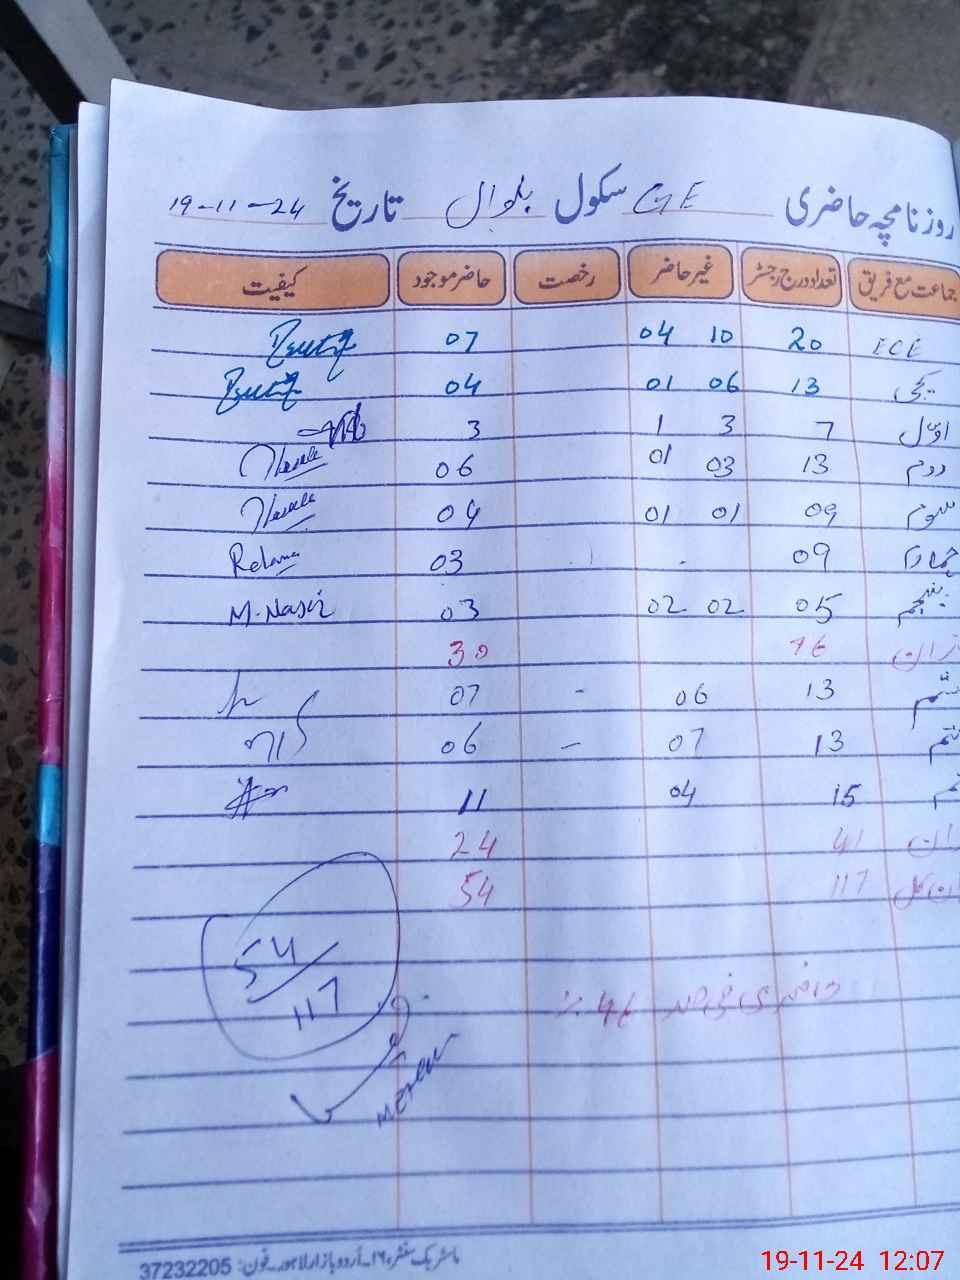 روزنامچہ حاضری GE سکول بلوال تاریخ 19-11-24
جماعت مع فریق تعداد درج رجسٹر غیر حاضر رخصت حاضر موجود کیفیت
ECE 20 10 04 07
کچی 13 06 01 04
اوّل 7 3 1 3
دوم 13 03 01 06
سوم 09 01 01 04
چہارم 09 03 Rehana
پنجم 05 02 02 03 M. Nasir
میزان 76 30
ششم 13 06 - 07
ہفتم 13 07 - 06
15 04 11
میزان 41 24
میزان کل 117 54
54/117
حاضری فی صد 46 %
37232205
19-11-24 12:07